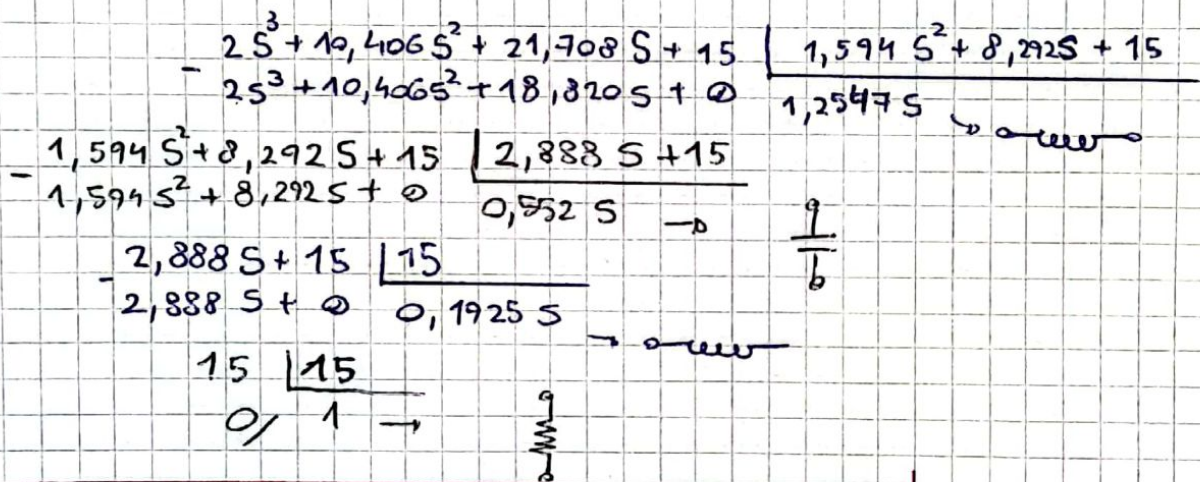 2S³ + 10,406S² + 21,708S + 15 | 1,594S² + 8,292S + 15
- 2S³ + 10,406S² + 18,820S + 0 1,2547S →
- 1,594S² + 8,292S + 15 | 2,888S + 15
1,594S² + 8,292S + 0 0,552S →
- 2,888S + 15 | 15
2,888S + 0 0,1925S →
15 | 15
0/ 1 →